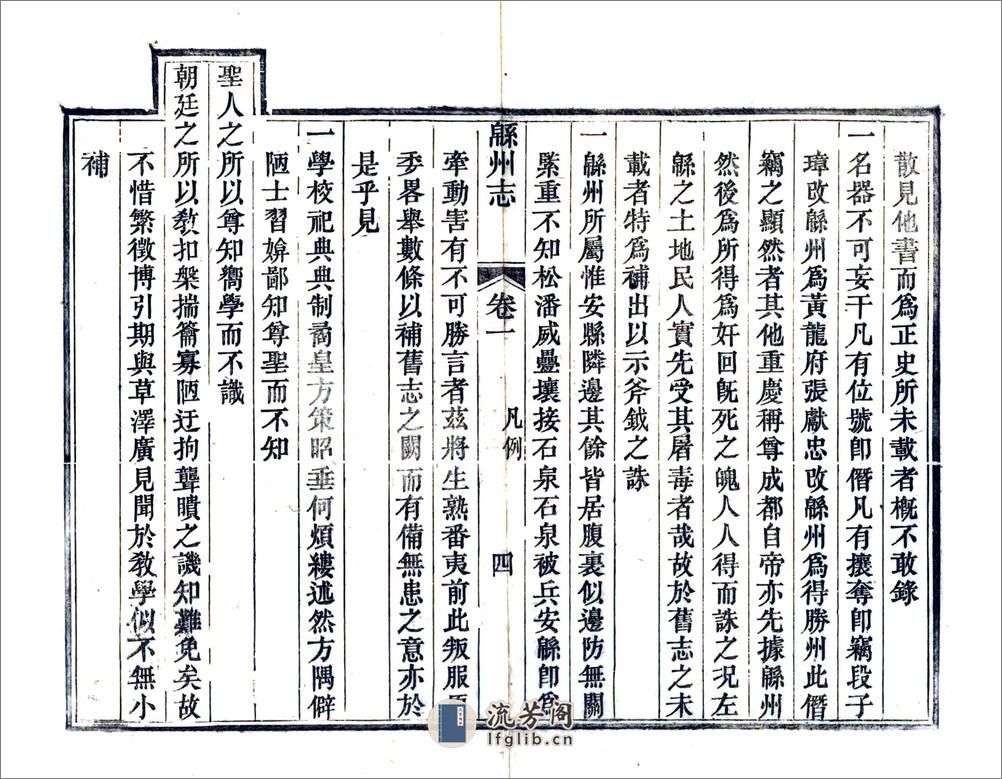 散見他書而爲正史所未載者槪不敢錄
一名器不可妄干凡有位號卽僭凡有攘奪卽竊段子
璋改緜州爲黃龍府張獻忠改緜州爲得勝州此僭
竊之顯然者其他重慶稱尊成都自帝亦先據緜州
然後爲所得爲奸回旣死之魄人人得而誅之況左
緜之土地民人實先受其屠毒者哉故於舊志之未
載者特爲補出以示斧鉞之誅
一緜州所屬惟安縣隣邊其餘皆居腹裏似邊防無關
緊重不知松潘威疊壤接石泉石泉被兵安緜卽爲
緜州志 卷一 凡例 四
牽動害有不可勝言者茲將生熟番夷前此叛服
委畧舉數條以補舊志之闕而有備無患之意亦於
是乎見
一學校祀典典制矞皇方策昭垂何煩縷述然方隅僻
陋士習媕鄙知尊聖而不知
聖人之所以尊知嚮學而不識
朝廷之所以敎扣槃揣籥寡陋迂拘聾瞶之譏知難免矣故
不惜繁徵博引期與草澤廣見聞於敎學似不無小
補
流芳阁
lfglib.cn